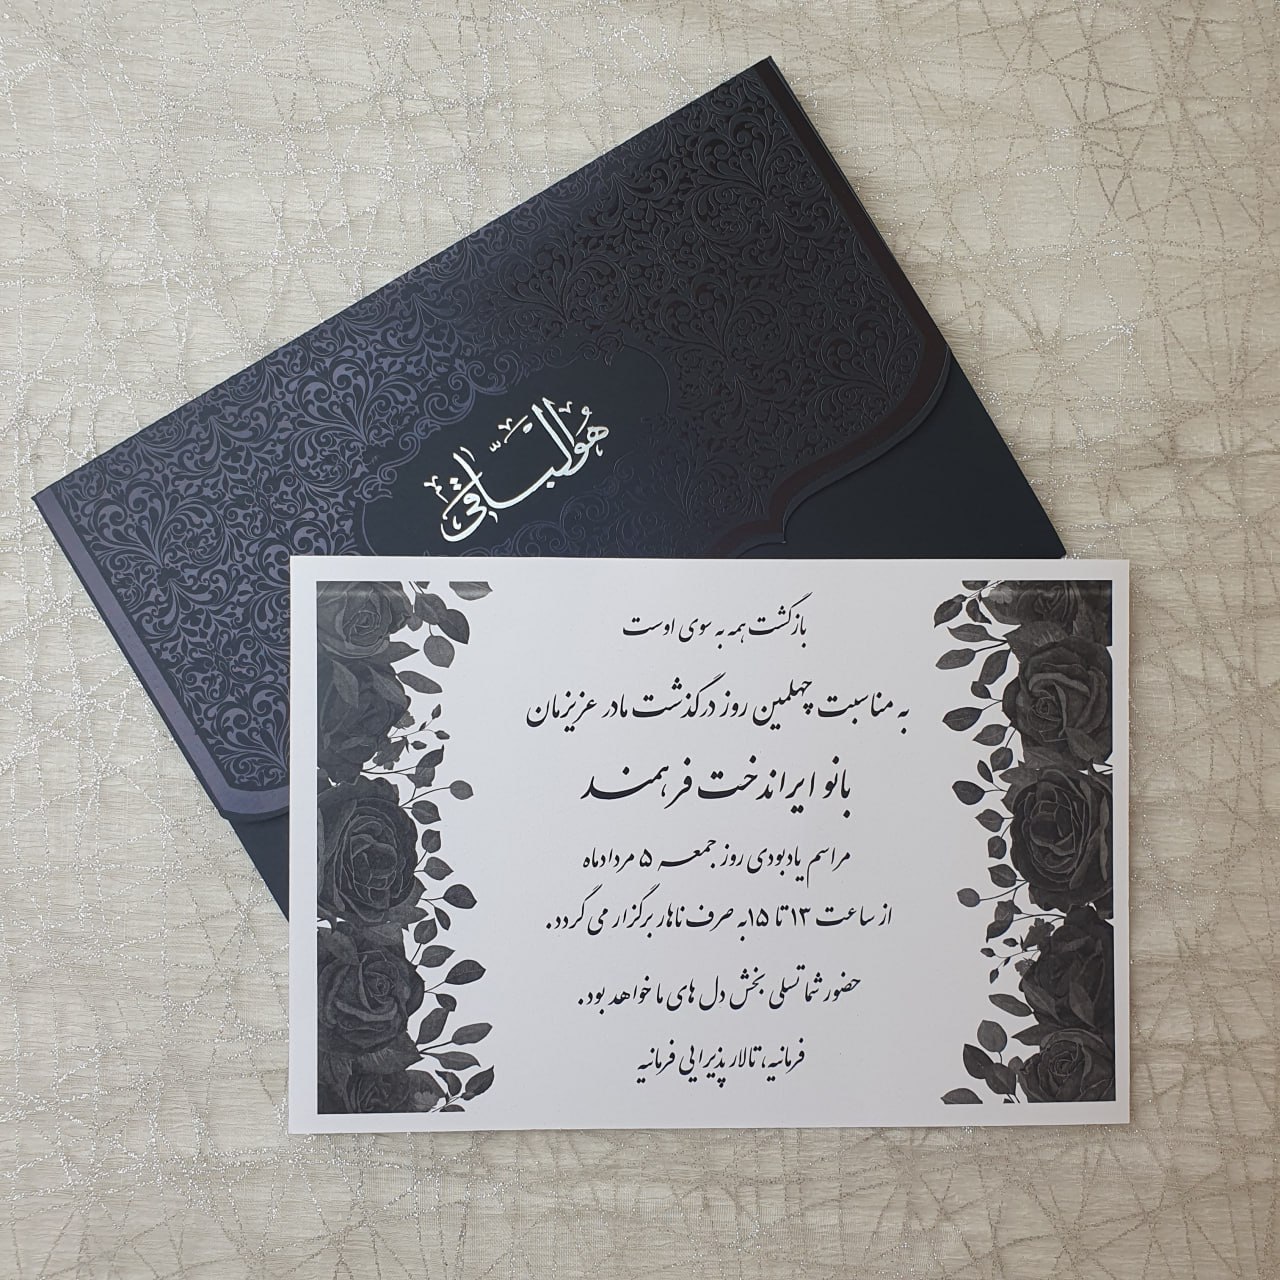 هوالباقی
بازگشت همه به سوی اوست
به مناسبت چهلمین روز درگذشت مادر عزیزمان
بانو ایراندخت فرهمند
مراسم یادبودی روز جمعه ۵ مردادماه
از ساعت ۱۳ تا ۱۵ به صرف ناهار برگزار می گردد.
حضور شما تسلی بخش دل های ما خواهد بود.
فرمانیه، تالار پذیرایی فرمانیه